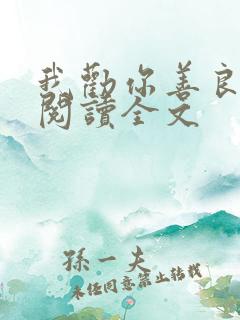 我勸你善良
閱讀全文
孫一夫
未經同意禁止轉載